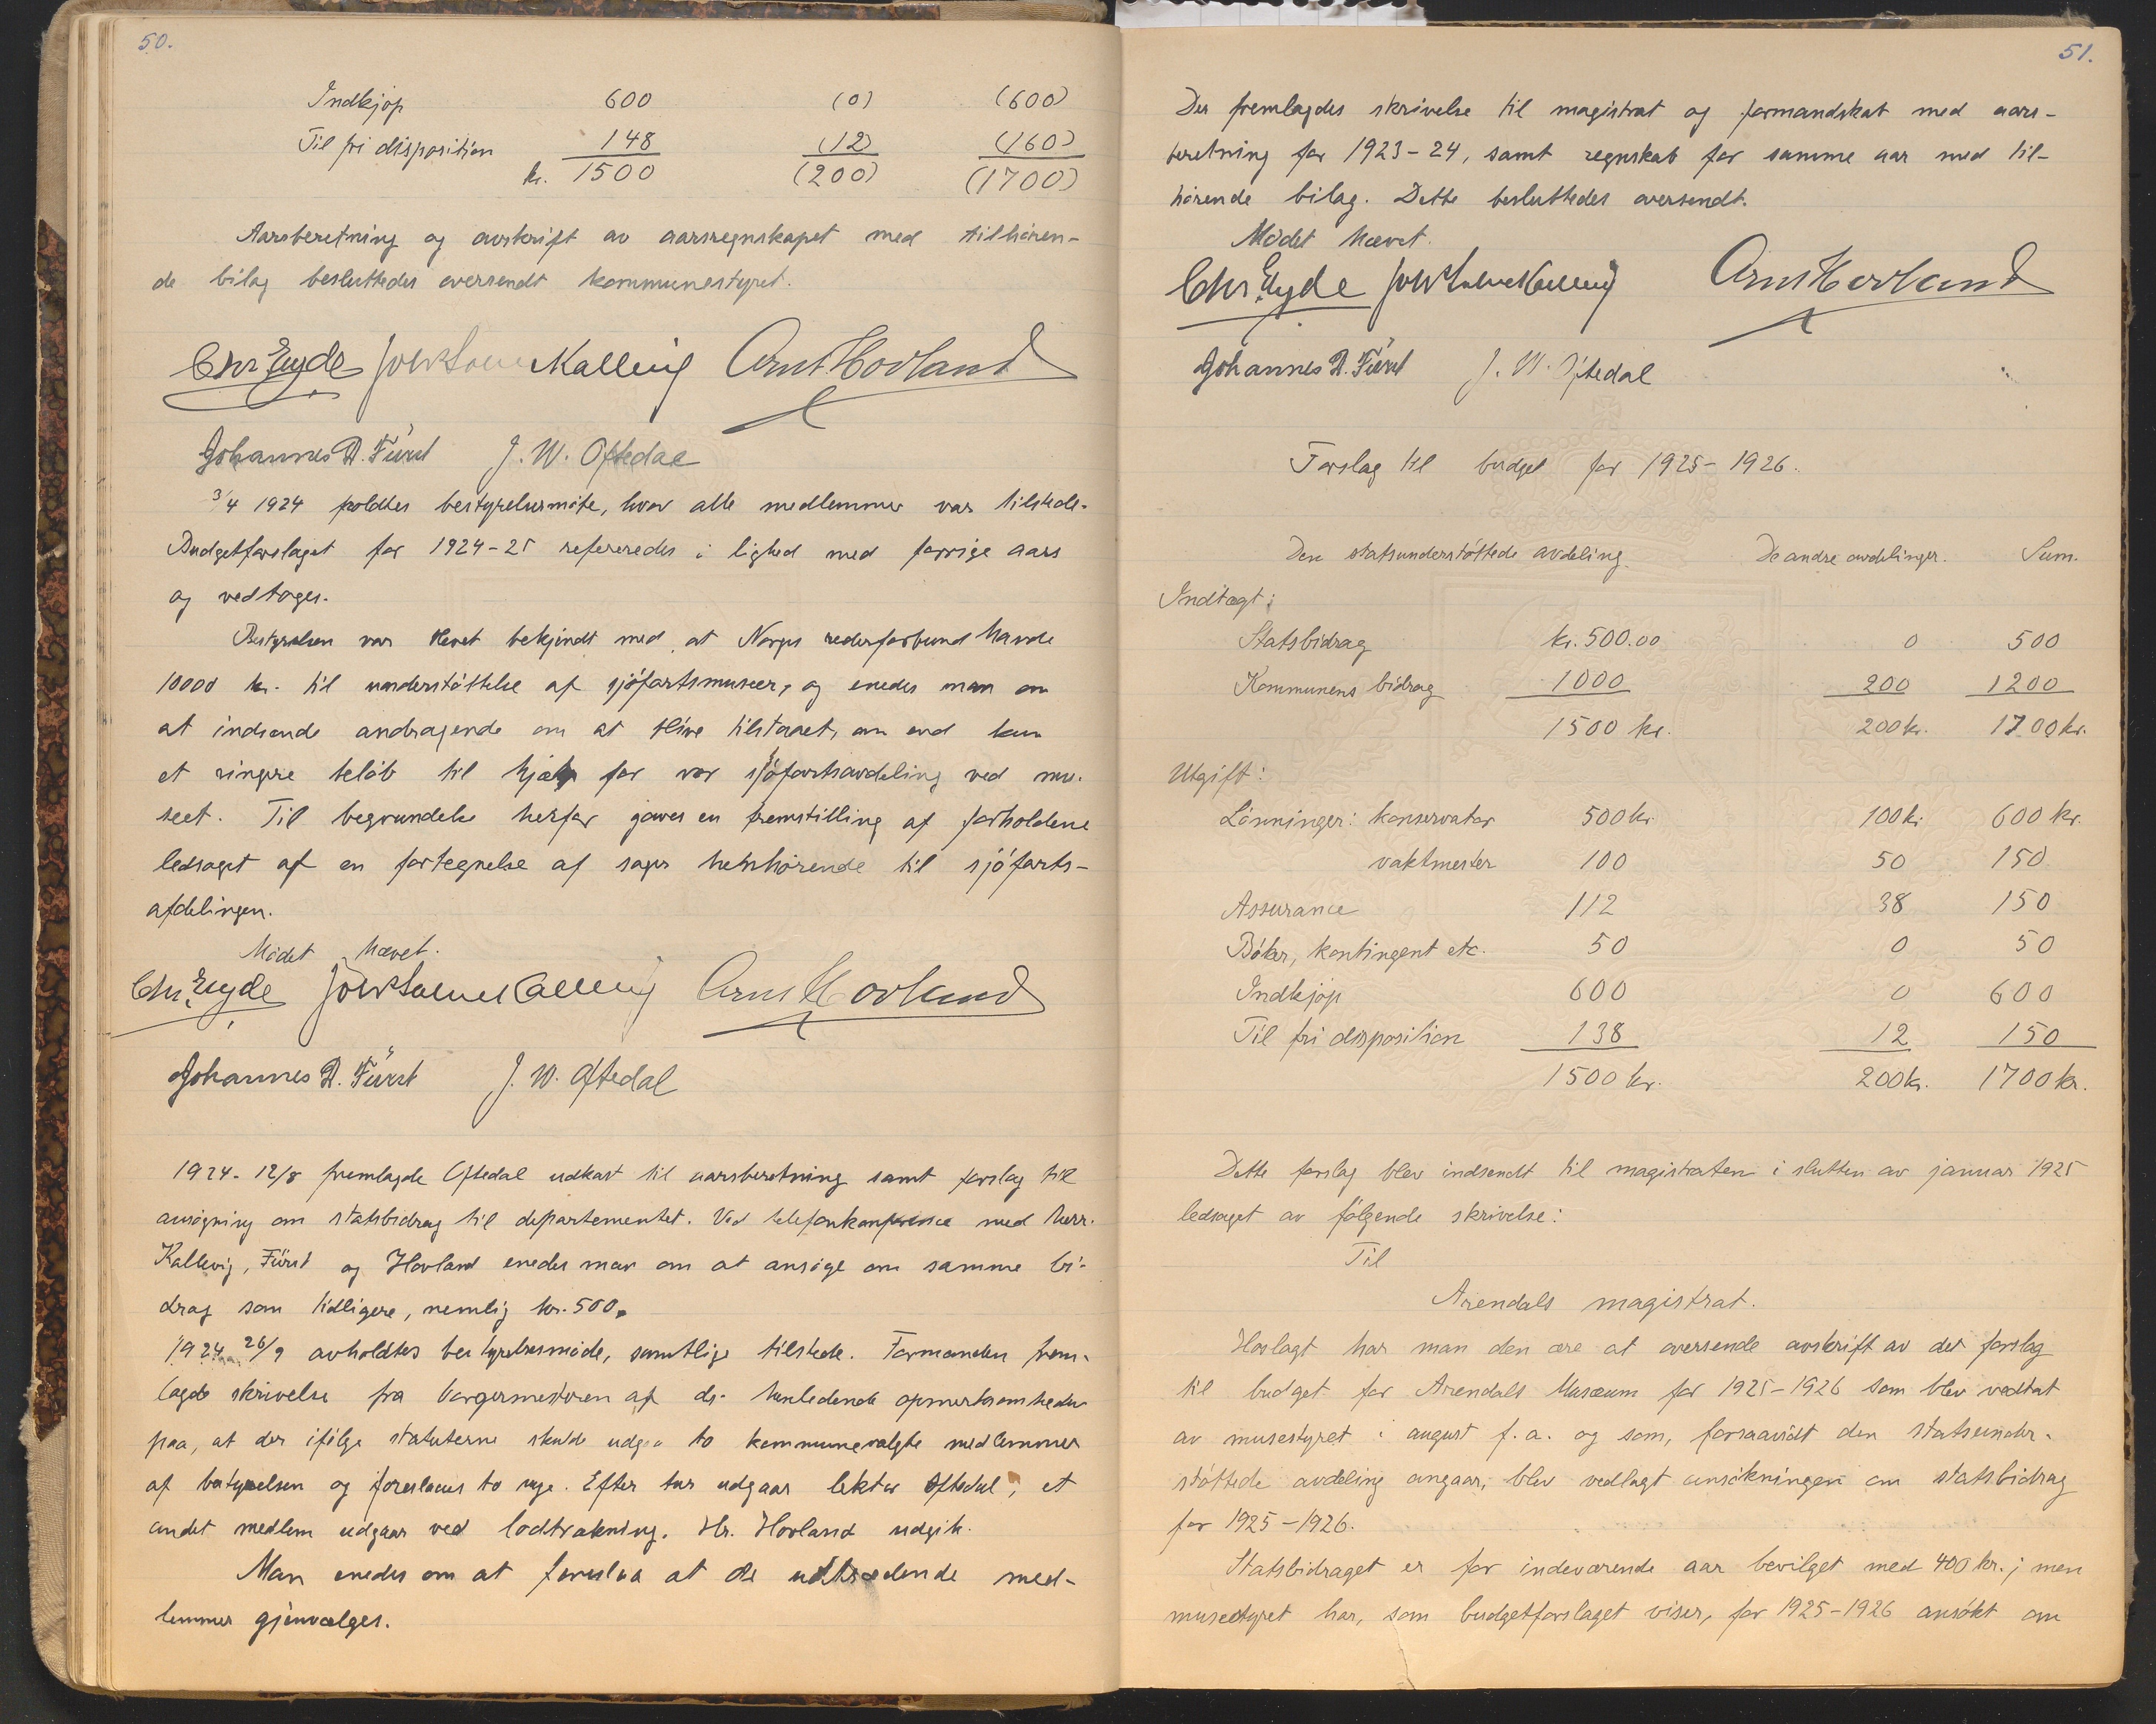 50.
Indkjøp 600 (0) (600)
Til fri disposition 148 (12) (160)
kr. 1500 (200) (1700)
Aarsberetning og avskrift av aarsregnskapet med tilhören-
de bilag besluttedes oversendt kommunestyret.
Chr. Eyde Kallevig Arnt Hovland
Johannes R. Fürst J. W. Oftedal
3/4 1924 holdtes bestyrelsesmöte, hvor alle medlemmer var tilstede.
Budgetforslaget for 1924-25 refereredes i lighed med forrige aars
og vedtoges.
Bestyrelsen var blevet bekjendt med, at Norges rederforbund havde
10000 kr. til understöttelse af sjöfartsmuseer, og enedes man om
at indsende andragende om at blive tilstaaet, om end kun
et ringere belöb til hjælp for vor sjöfartsavdeling ved mu-
seet. Til begrundelse herfor gaves en fremstilling af forholdene
ledsaget af en fortegnelse af sager henhörende til sjöfarts-
afdelingen.
Mödet hævet.
Chr. Eyde Kallevig Arnt Hovland
Johannes R. Fürst J. W. Oftedal
1924. 12/8 fremlagde Oftedal udkast til aarsberetning samt forslag til
ansögning om statsbidrag til departementet. Ved telefonkonference med herr.
Kallevig, Fürst og Hovland enedes man om at ansöge om samme bi-
drag som tidligere, nemlig kr. 500.
1924 26/9 avholdtes bestyrelsesmöde, samtlige tilstede. Formanden frem-
lagde skrivelse fra borgermesteren af ds. henledende opmerksomheden
paa, at der ifölge statuterne skulde udgaa to kommunevalgte medlemmer
af bestyrelsen og foreslaaes to nye. Efter tur udgaar lektor Oftedal, et
andet medlem udgaar ved lodtrækning. Hr. Hovland udgik.
Man enedes om at foreslaa at de udtrædende med-
lemmer gjenvælges.
51.
Der fremlagdes skrivelse til magistrat og formandskab med aars-
beretning for 1923-24, samt regnskab for samme aar med til-
hörende bilag. Dette besluttedes oversendt.
Mödet hævet.
Chr. Eyde Kallevig Arnt Hovland
Johannes R. Fürst J. W. Oftedal
Forslag til budget for 1925-1926.
Den statsunderstöttede avdeling. De andre avdelinger. Sum.
Indtægt:
Statsbidrag kr. 500.00 0 500
Kommunens bidrag 1000 200 1200
1500 kr. 200 kr. 1700 kr.
Utgift:
Lönninger: konservator 500 kr. 100 kr. 600 kr.
vaktmester 100 50 150
Assurance 112 38 150
Böker, kontingent etc. 50 0 50
Indkjøp 600 0 600
Til fri disposition 138 12 150
1500 kr. 200 kr. 1700 kr.
Dette forslag blev indsendt til magistraten i slutten av januar 1925
ledsaget av fölgende skrivelse:
Til
Arendals magistrat.
Hoslagt har man den ære at oversende avskrift av det forslag
til budget for Arendals Musæum for 1925-1926 som blev vedtat
av musestyret i august f.a. og som, forsaavidt den statsunder-
støttede avdeling angaar, blev vedlagt ansökningen om statsbidrag
for 1925-1926.
Statsbidraget er for indeværende aar bevilget med 400 kr.; men
musestyret har, som budgetforslaget viser, for 1925-1926 ansökt om